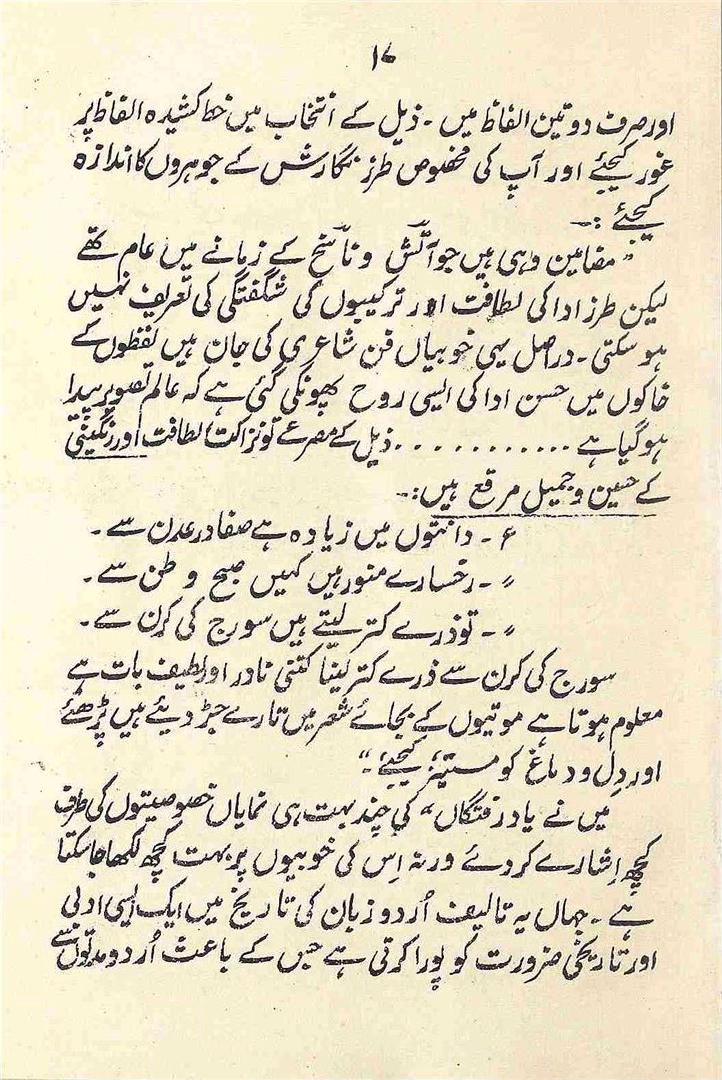 ۱۷
اور صرف دو تین الفاظ میں ۔ ذیل کے انتخاب میں خط کشیدہ الفاظ پر
غور کیجئے اور آپ کی مخصوص طرز نگارش کے جوہروں کا اندازہ
کیجئے :۔
" مضامین وہی ہیں جو آتش و ناسخ کے زمانے میں عام تھے
لیکن طرز ادا کی لطافت اور ترکیبوں کی شگفتگی کی تعریف نہیں
ہو سکتی ۔ دراصل یہی خوبیاں فن شاعری کی جان ہیں لفظوں کے
خاکوں میں حسن ادا کی ایسی روح پھونکی گئی ہے کہ عالم تصویر پیدا
ہو گیا ہے ........... ذیل کے مصرعے تو نزاکت لطافت اور رنگینی
کے حسین و جمیل مرقع ہیں :۔
ع ۔ دانتوں میں زیادہ ہے صفا در عدن سے ۔
" ۔ رخسارے منور ہیں کہیں صبح وطن سے ۔
" ۔ تو ذرے کتر لیتے ہیں سورج کی کرن سے ۔
سورج کی کرن سے ذرے کتر لینا کتنی نادر اور لطیف بات ہے
معلوم ہوتا ہے موتیوں کے بجائے شعر میں تارے جڑ دیئے ہیں پڑھئے
اور دِل و دماغ کو مستنیر کیجئے ۔ "
میں نے یاد رفتگاں " کی چند بہت ہی نمایاں خصوصیتوں کی طرف
کچھ اِشارے کر دئے ورنہ اِس کی خوبیوں پر بہت کچھ لکھا جا سکتا
ہے ۔ جہاں یہ تالیف اُردو زبان کی تاریخ میں ایک ایسی ادبی
اور تاریخی ضرورت کو پورا کرتی ہے جس کے باعث اُردو مدتوں سے